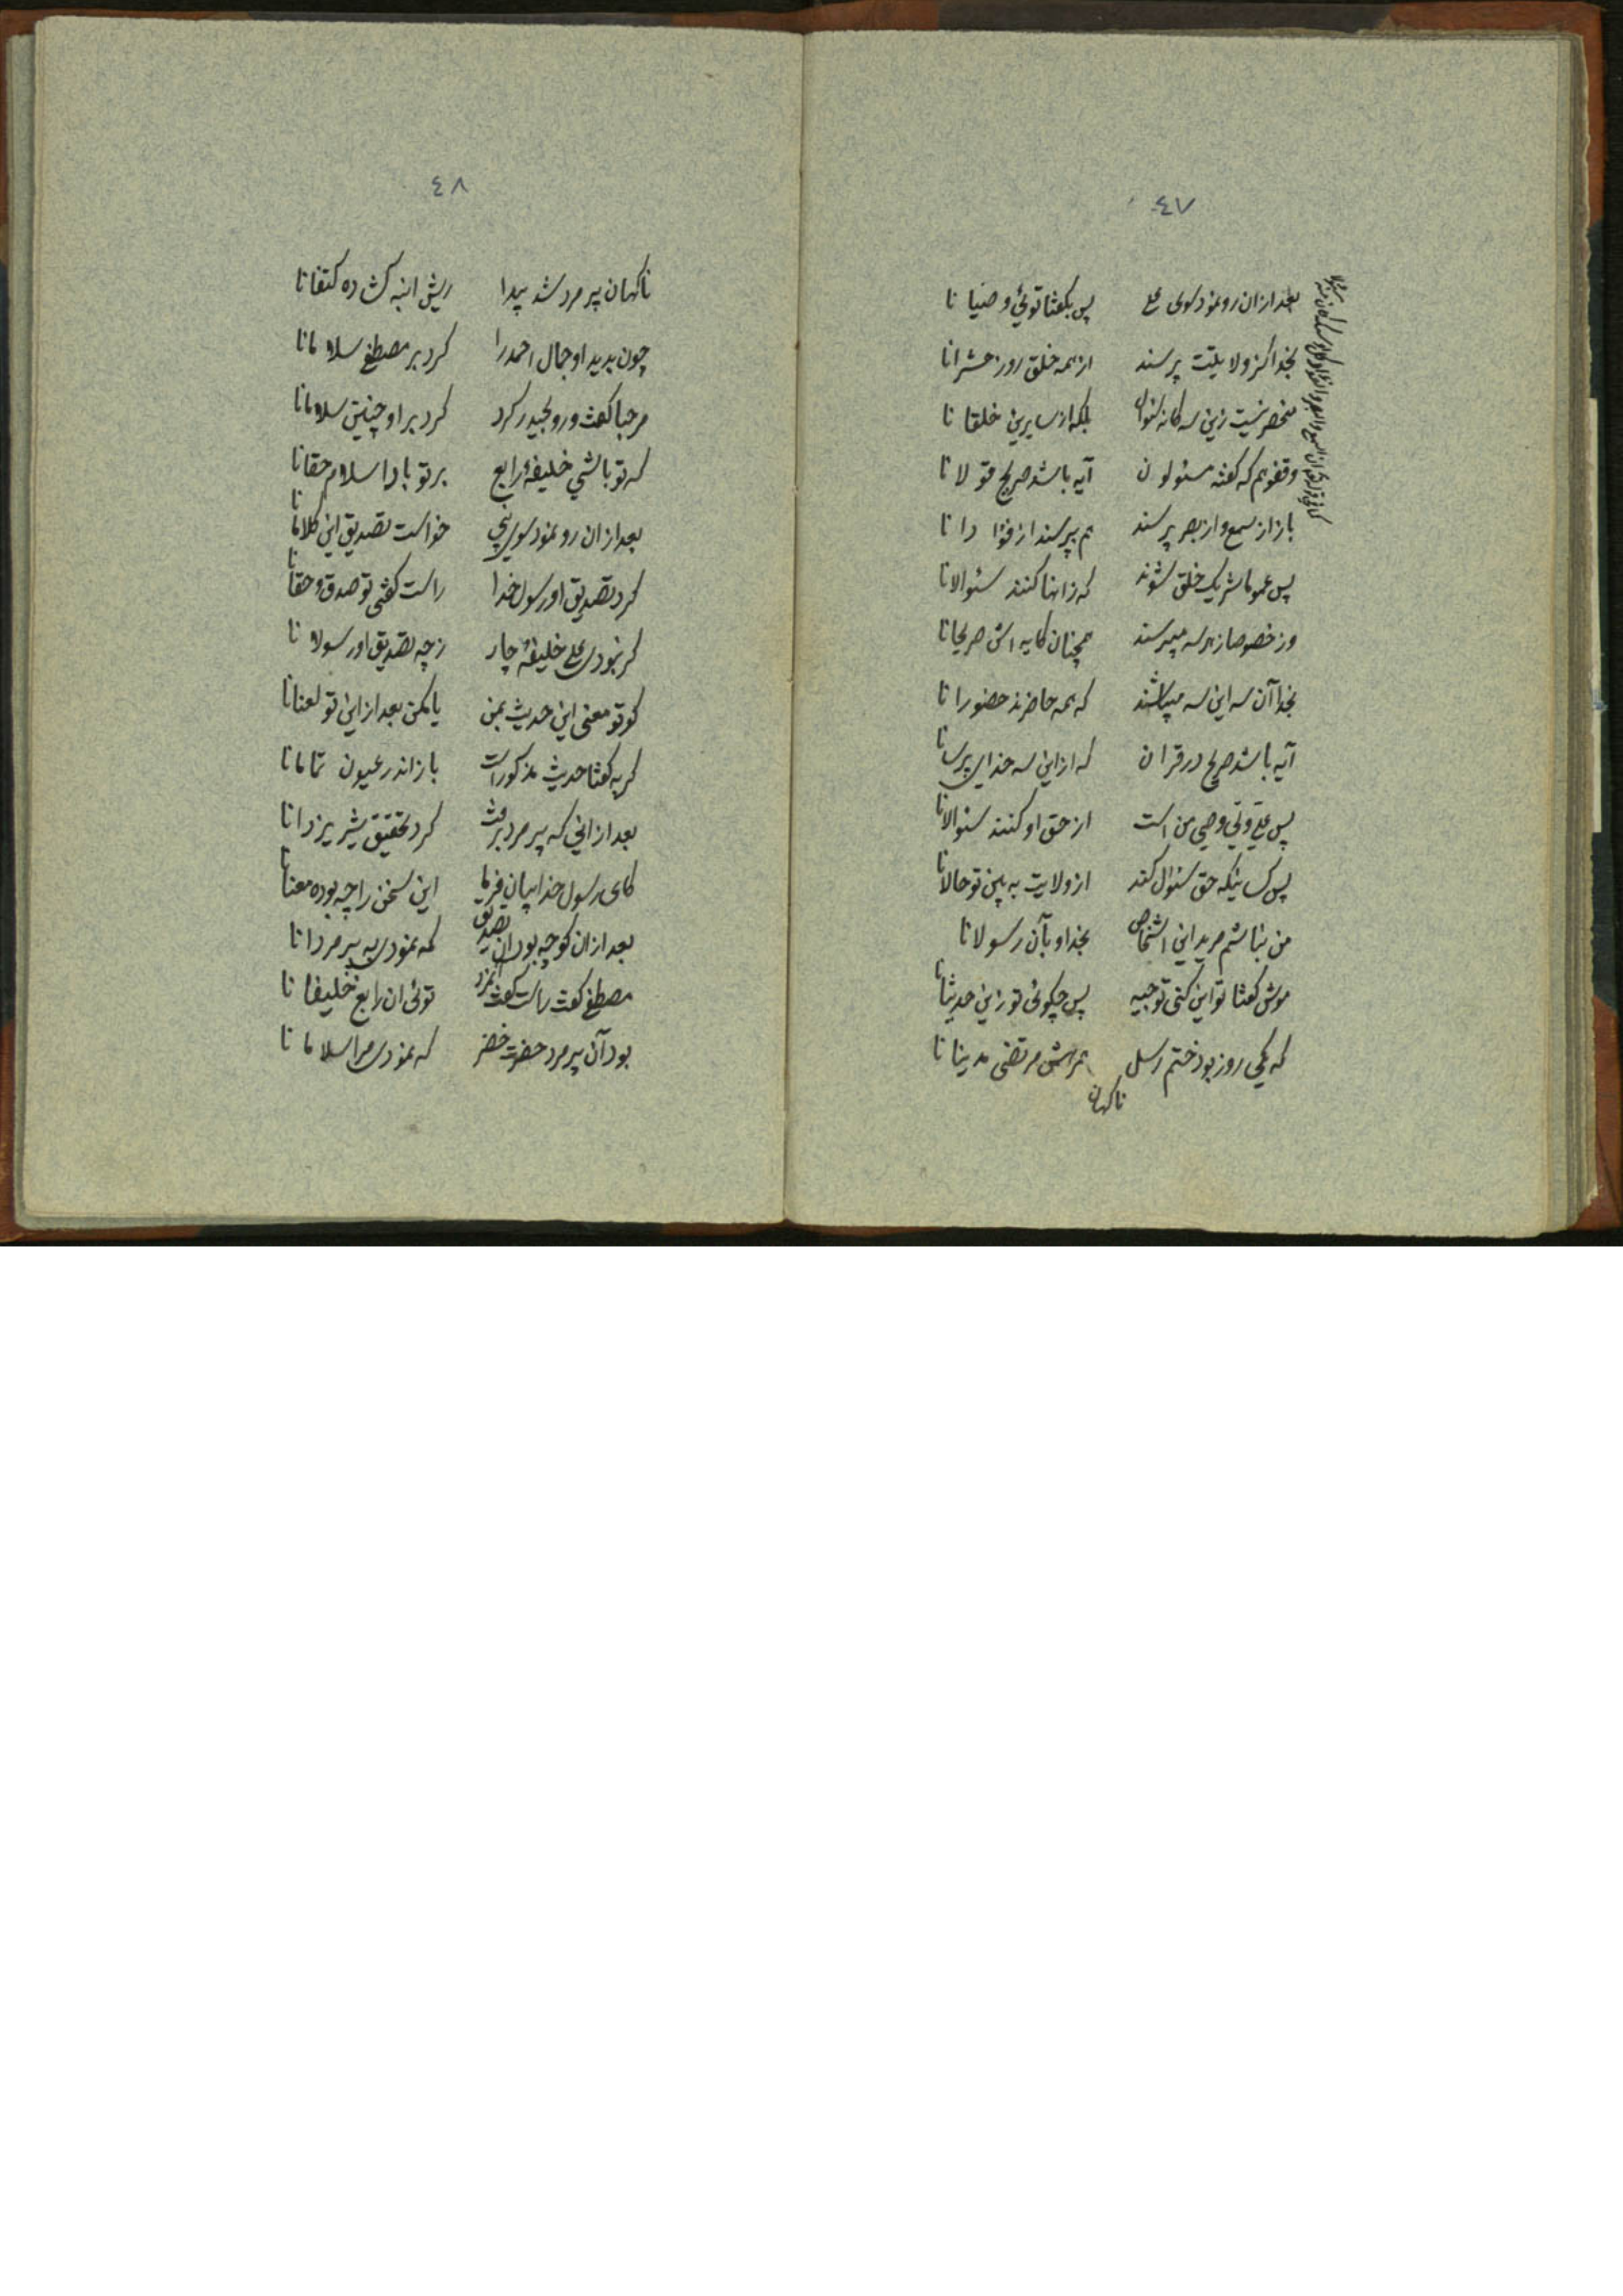 ٤٧
بعد ازان رو نمود سوی علی پس بگفتا توئی وصیانا
بخدا کز ولایتت پرسند از همه خلق روز حشرانا
منحصر نیست زین سه گانه سئوال بلکه از سایرین خلقانا
وقفوهم که گفته مسئولون آیه باشد صریح قولانا
باز از سمع و از بصر پرسند هم بپرسند از فؤادانا
پس عموما شریک خلق شوند که زانها کنند سئوالانا
وز خصوصا ز هر سه میپرسند همچنان کایه اش صریحانا
بخدا آن سه این سه میباشند که همه حاضرند حضورانا
آیه باشد صریح در قران که از این سه خدای پرسانا
پس علی ولی وصی من است از حق او کنند سئوالانا
پس کسانیکه حق سئوال کند از ولایت به بین تو حالانا
من نباشم مرید این اشخاص بخدا و بآن رسولانا
موش گفتا تو این کنی توجیه پس چگوئی تو زین حدیثانا
که یکی روز بود ختم رسل همرهش مرتضی مدینانا
ناگهان
٤٨
ناگهان پیر مرد شد پیدا ریش انبه گشاده کتفانا
چون بدید او جمال احمد را کرد بر مصطفی سلامانا
مرحبا گفت و رو بحیدر کرد کرد بر او چنین سلامانا
که تو باشی خلیفه رابع بر تو بادا سلام حقانا
بعد ازان رو نمود سوی نبی خواست تصدیق این کلامانا
کرد تصدیق او رسول خدا راست گفتی تو صدق و حقانا
گر نبودی علی خلیفۀ چار ز چه تصدیق او رسولانا
گو تو معنی این حدیث بمن یا مکن بعد از این تو لعنانا
گربه گفتا حدیث مذکور است باز اندر عیون تمامانا
بعد از اینی که پیر مرد برفت کرد تحقیق شیر یزدانا
کای رسول خدا بیان فرما این سخن را چه بوده معنانا
بعد ازان گو چه بود ان تصدیق که نمودی به پیر مردانا
مصطفی گفت راست گفت نمرد توئی ان رابع خلیفانا
بود آن پیر مرد حضرت خضر که نمودی مرا سلامانا